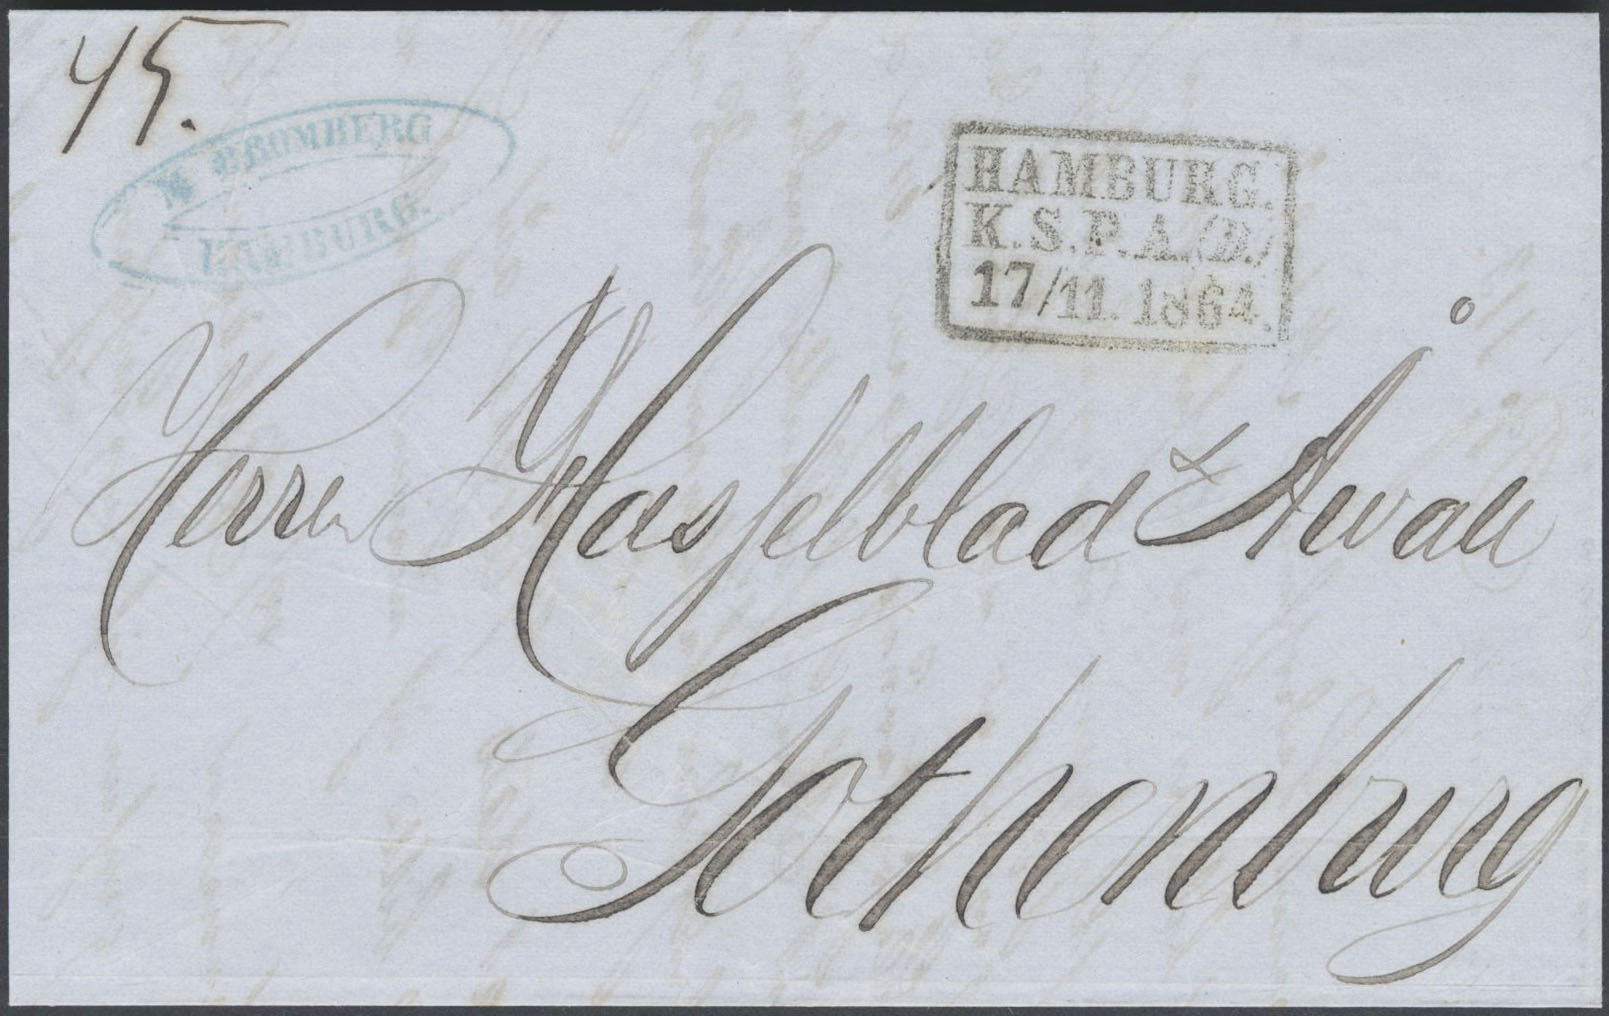 45.
M BROMBERG
HAMBURG.
HAMBURG.
K.S.P.A.(D.)
17/11.1864.
Herren Hasselblad &
Gothenburg